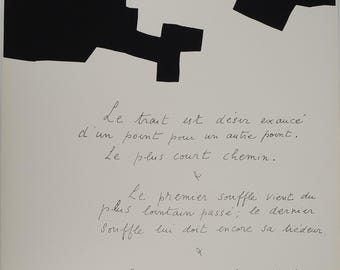 Le trait est désir exaucé
d'un point pour un autre point.
Le plus court chemin.
Le premier souffle vient du
plus lointain passé ; le dernier
souffle lui doit encore sa tiédeur.